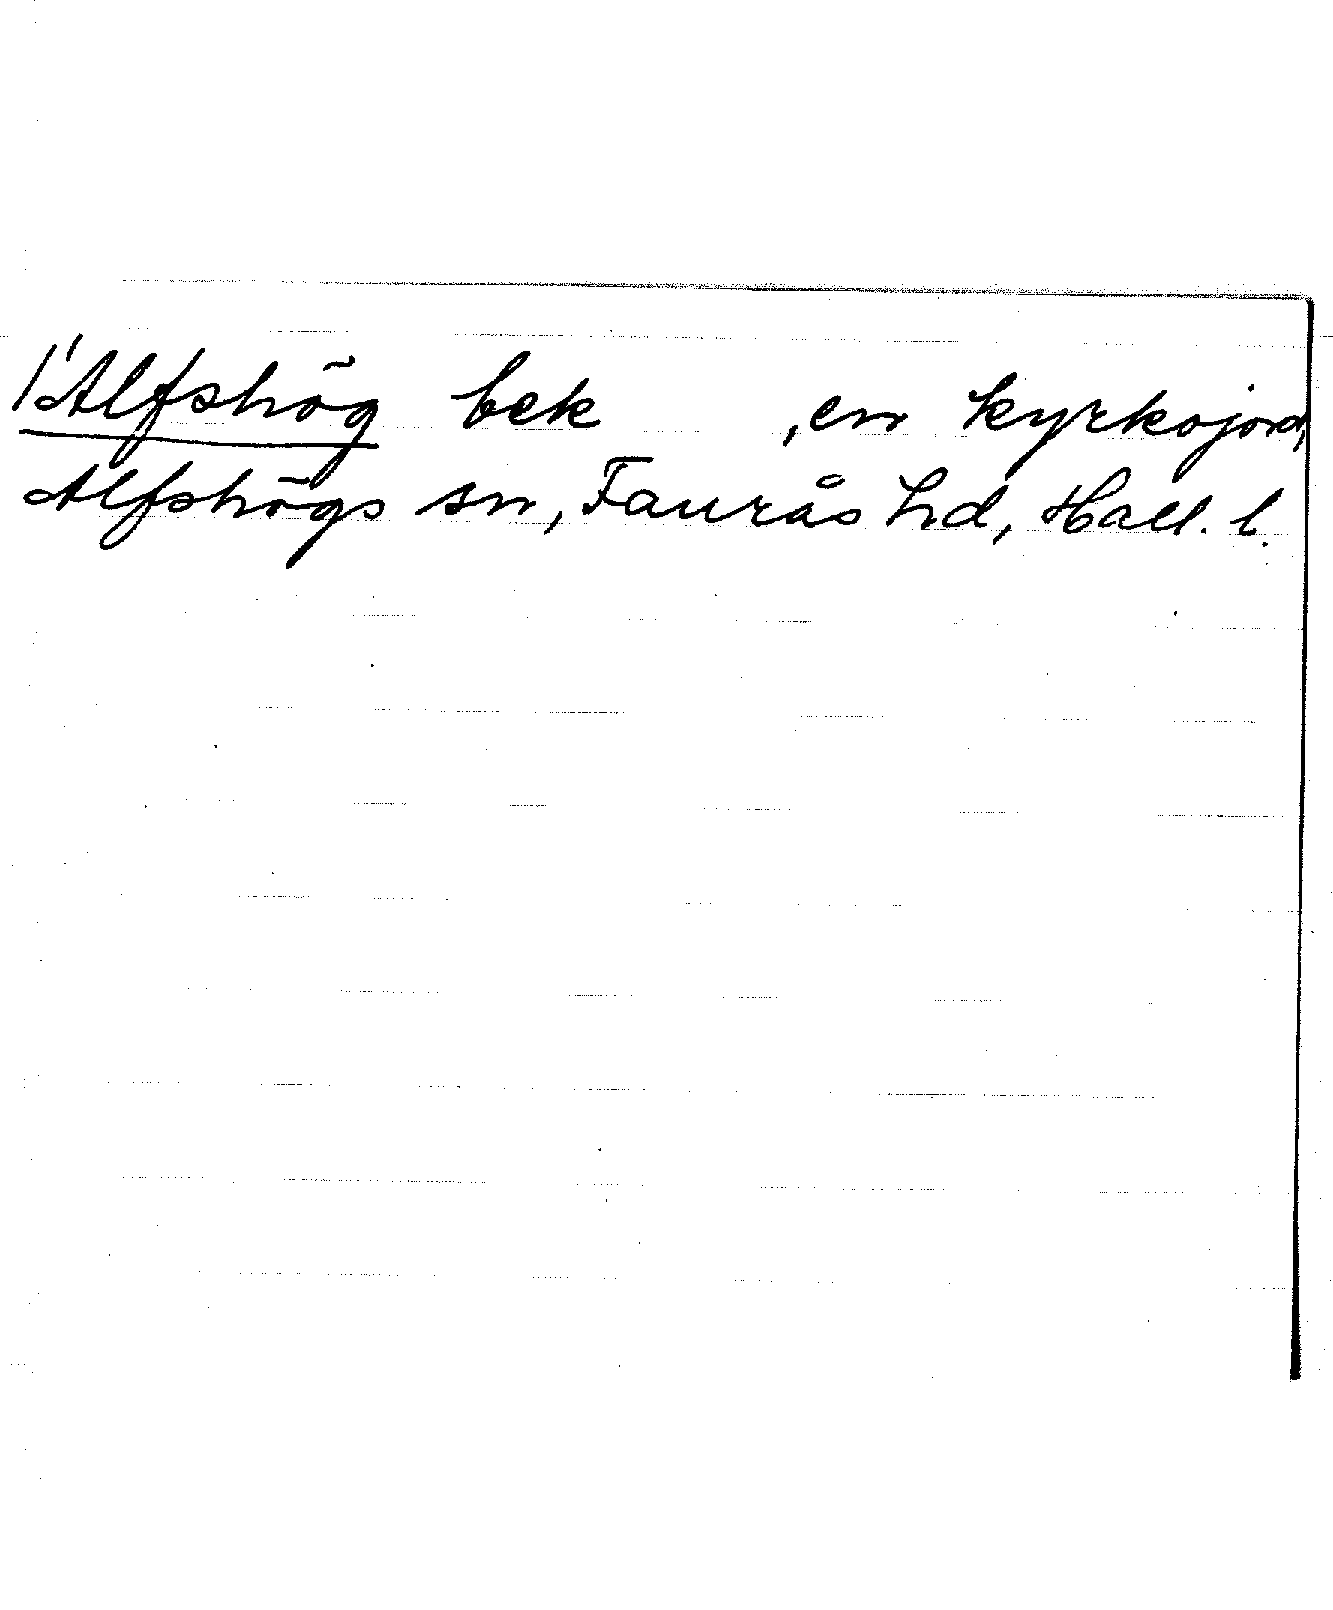 1'Alfshög bek , en kyrkojord,
Alfshögs sn, Faurås hd, Hall. l.